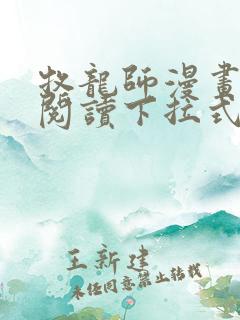 牧龍師漫畫
閱讀下拉式
王新建
未任同意禁止轉載